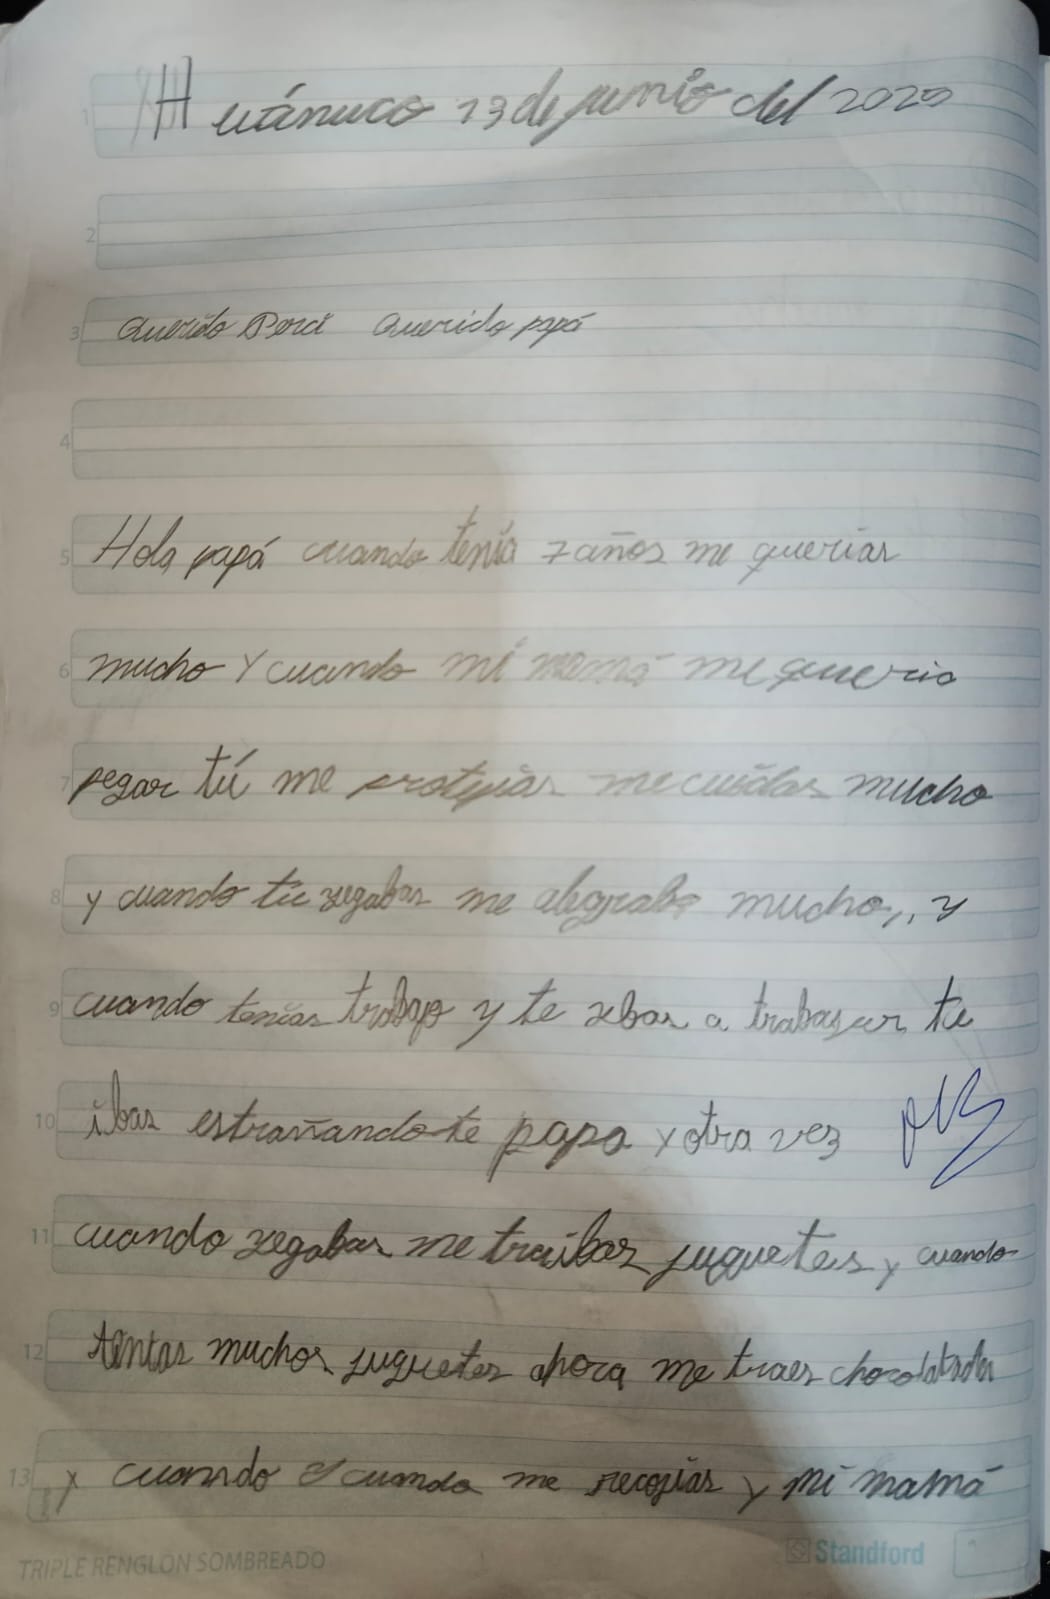 Huánuco 13 de junio del 2020
Querido Querido papá
Hola papá cuando tenía 7 años me querias
mucho y cuando mi mamá me queria
pegar tú me protejias me cuidas mucho
y cuando tú yegabas me alegraba mucho,, y
cuando tenias trabajo y te ibas a trabajar te
ibas estrañandote papa y otra vez
cuando yegabas me traibas juguetes y cuando
tentas muchos juguetes ahora me traes chocolatada
y cuando y cuando me recojias y mi mamá
TRIPLE RENGLÓN SOMBREADO
Standford